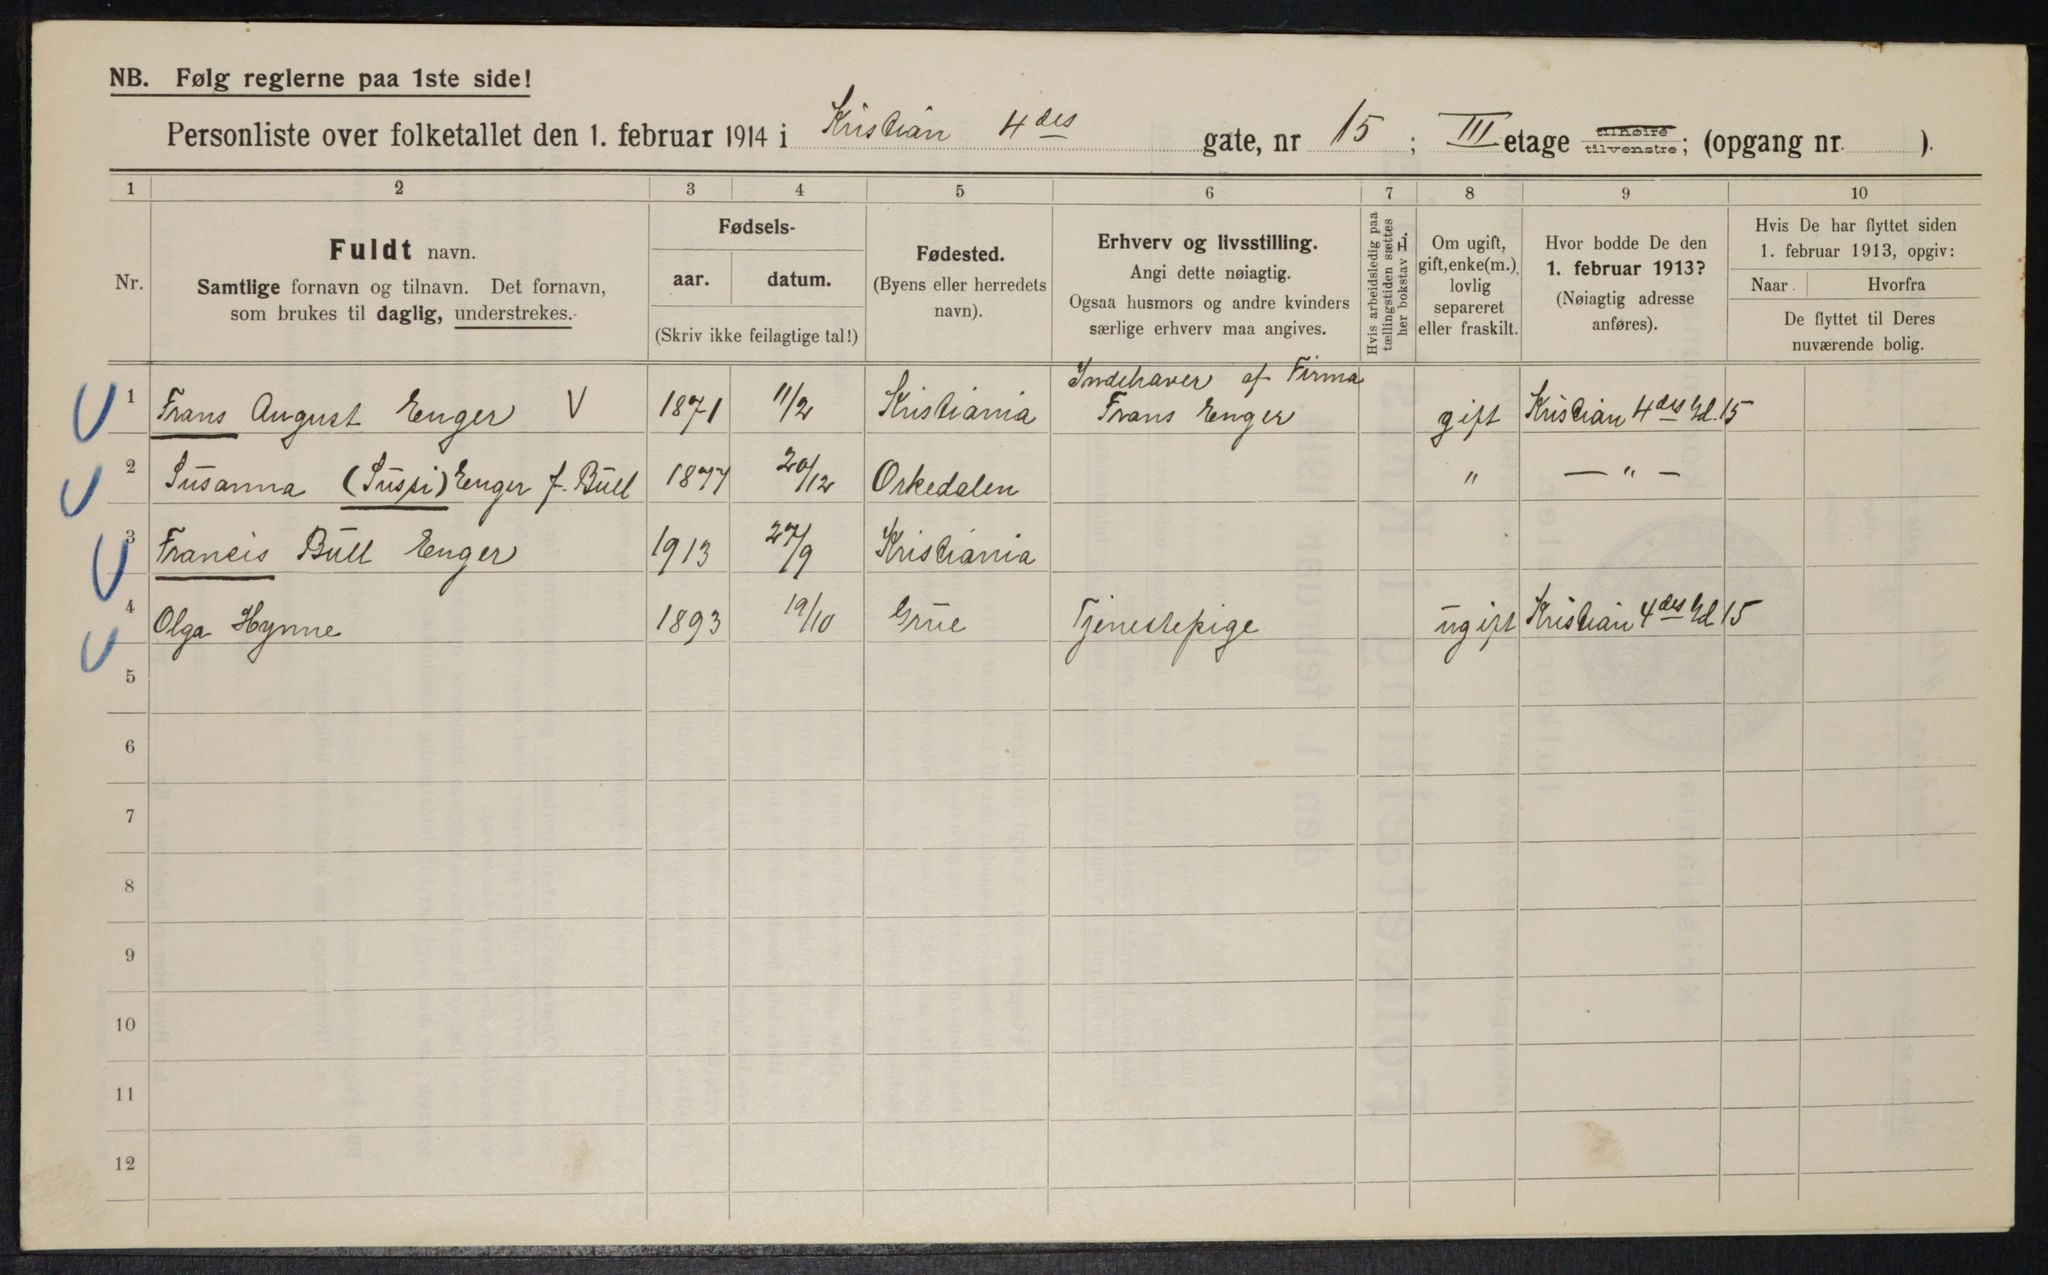 NB. Følg reglerne paa 1ste side!
Personliste over folketallet den 1. februar 1914 i Kristian 4des gate, nr 15 ; III etage tilhøire tilvenstre; (opgang nr. ).
1 2 3 4 5 6 7 8 9 10
Nr.
Fuldt navn.
Samtlige fornavn og tilnavn. Det fornavn,
som brukes til daglig, understrekes.
Fødsels-
aar. datum.
(Skriv ikke feilagtige tal!)
Fødested.
(Byens eller herredets
navn).
Erhverv og livsstilling.
Angi dette nøiagtig.
Ogsaa husmors og andre kvinders
særlige erhverv maa angives.
Hvis arbeidsledig paa
tællingstiden sættes
her bokstav L.
Om ugift,
gift, enke(m.),
lovlig
separeret
eller fraskilt.
Hvor bodde De den
1. februar 1913?
(Nøiagtig adresse
anføres).
Hvis De har flyttet siden
1. februar 1913, opgiv:
Naar. Hvorfra
De flyttet til Deres
nuværende bolig.
1 Frans August Enger V 1871 11/2 Kristiania Indehaver af Firma Frans Enger gift Kristian 4des Gd. 15
2 Susanna (Suspi) Enger f. Bull 1877 20/12 Orkedalen " — " —
3 Francis Bull Enger 1913 27/9 Kristiania
4 Olga Hynne 1893 19/10 Grue Tjenestepige ugift Kristian 4des Gd 15
5
6
7
8
9
10
11
12